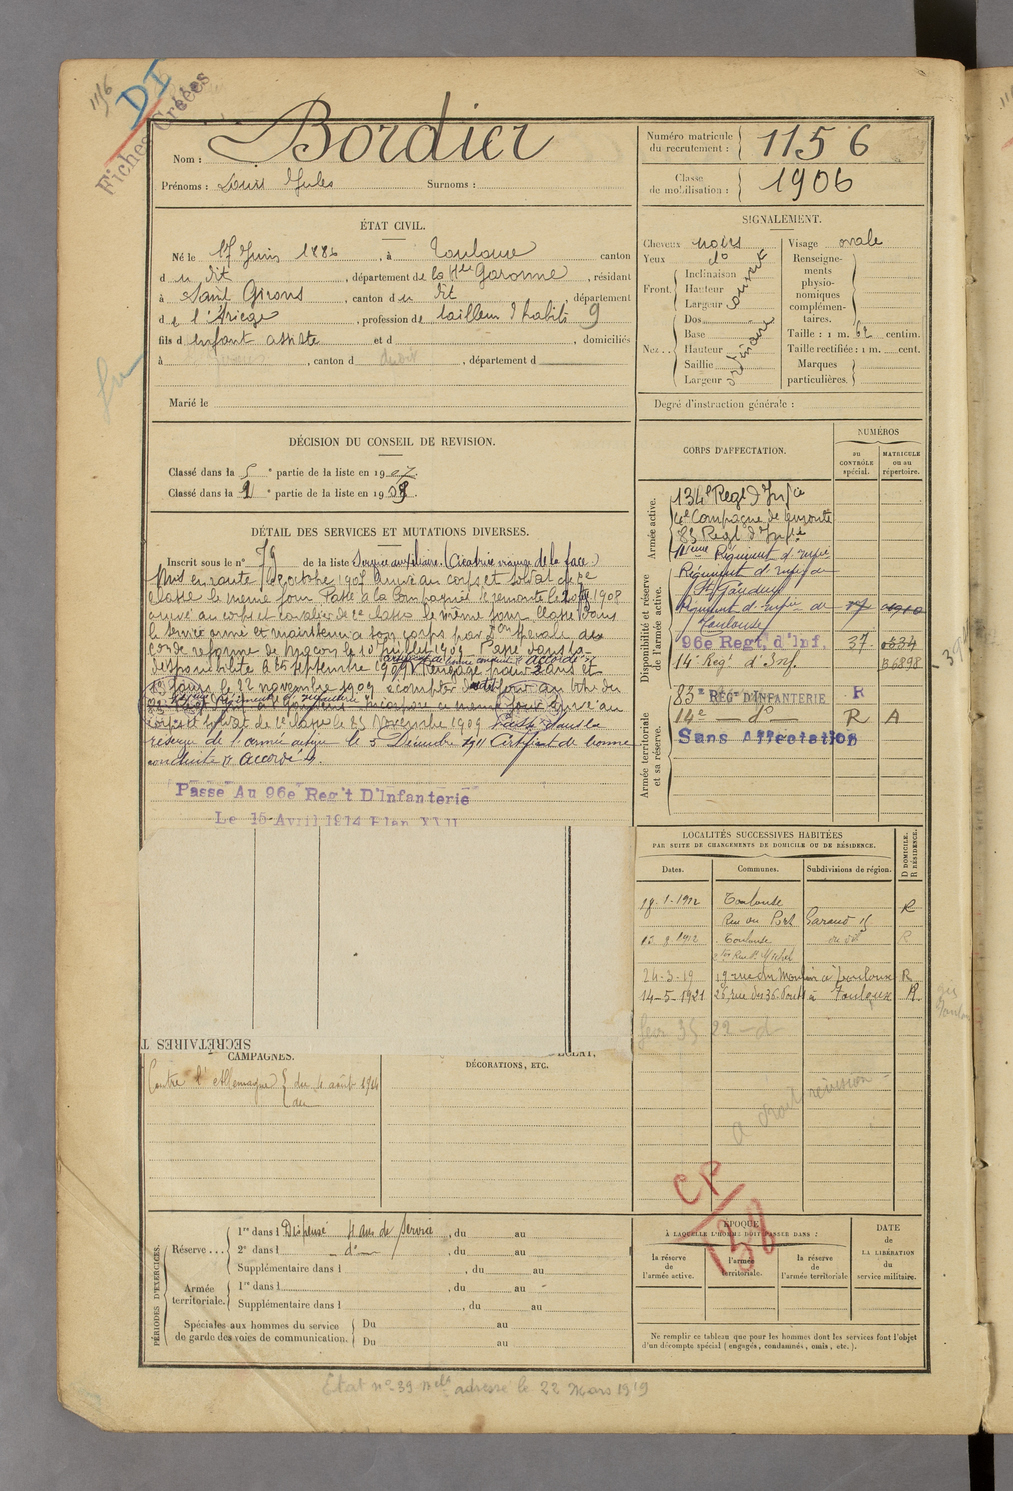 1156
DI
Fiches Créées
Nom : Bordier
Prénoms : Louis Jules Surnoms :
Numéro matricule du recrutement : 1156
Classe de mobilisation : 1906
ÉTAT CIVIL.
Né le 17 Juin 1886, à Toulouse canton
du dit, département de la Hte Garonne, résidant
à Saint Girons, canton du dit, département
de l'Ariège, profession de tailleur d'habits 9
fils d'enfant assisté et d , domiciliés
à , canton d dudit, département d
Marié le
SIGNALEMENT.
Cheveux noirs
Yeux do
Front. Inclinaison
Hauteur
Largeur
couvert
Nez.. Dos
Base
Hauteur
Saillie
Largeur
ordinaire
Visage ovale
Renseignements physionomiques complémentaires.
Taille : 1 m. 62 centim.
Taille rectifiée : 1 m. cent.
Marques particulières.
Degré d'instruction générale :
DÉCISION DU CONSEIL DE REVISION.
Classé dans la 5e partie de la liste en 1907.
Classé dans la partie de la liste en 190
DÉTAIL DES SERVICES ET MUTATIONS DIVERSES.
Inscrit sous le no 79 de la liste Service auxiliaire. (Cicatrice vicieuse de la face)
Mis en route octobre 1907 arrivé au corps et soldat de 2e
classe le même jour. Passé à la Compagnie de remonte le 1908
arrivé au corps et cavalier de 2e classe le même jour. Classé dans
le service armé et maintenu à son corps par
de réforme de Macon le 10 juillet 1909. Passé dans la
disponibilité le 25 septembre 1909. accordé
engagé pour 2 ans et
jours le 22 novembre 1909 à compter
incorporé ce même jour arrivé au
corps et soldat de 2e classe le 23 Novembre 1909. Passé dans la
réserve de l'armée active le 5 Décembre 1911 Certificat de bonne
conduite accordé.
Passé Au 96e Reg't D'Infanterie
Le 15 Avril 1914 Plan XVII
CORPS D'AFFECTATION.
NUMÉROS
au CONTRÔLE spécial.
MATRICULE ou au répertoire.
Armée active.
134e Regt d'Infie
4e Compagnie de remonte
83 Regt d'Infie
Disponibilité et réserve de l'armée active.
Régiment d'infie de
St Gaudens
Régiment d'infie de
Toulouse
96e Regt. d'Inf. 37
14e Regt d'Inf. B6898
Armée territoriale et sa réserve.
83e REGt D'INFANTERIE R
14e — do — R A
Sans Affectation
LOCALITÉS SUCCESSIVES HABITÉES
PAR SUITE DE CHANGEMENTS DE DOMICILE OU DE RÉSIDENCE.
Dates. Communes. Subdivisions de région. D DOMICILE. R RÉSIDENCE.
18-1-1912 Toulouse R
Rue du Port Garaud 15
1912 Toulouse R
Rue St Michel
24-3-19 19 rue du Moulin à Toulouse R
14-5-1921 26, rue des 36 Ponts à Toulouse R
a droit révision
SECRÉTAIRES
CAMPAGNES.
Contre l'Allemagne du 4 août 1914
au
DÉCORATIONS, ETC.
CP
138
PÉRIODES D'EXERCICES.
Réserve... 1re dans l Dispensé 4 ans de service, du au
2e dans l — do —, du au
Supplémentaire dans l , du au
Armée territoriale. 1re dans l , du au
Supplémentaire dans l , du au
Spéciales aux hommes du service de garde des voies de communication. Du au
Du au
ÉPOQUE
À LAQUELLE L'HOMME DOIT PASSER DANS :
la réserve de l'armée active.
l'armée territoriale.
la réserve de l'armée territoriale
DATE de LA LIBÉRATION du service militaire.
Ne remplir ce tableau que pour les hommes dont les services font l'objet
d'un décompte spécial (engagés, condamnés, omis, etc.).
Etat no 39 adressé le 22 Mars 1919